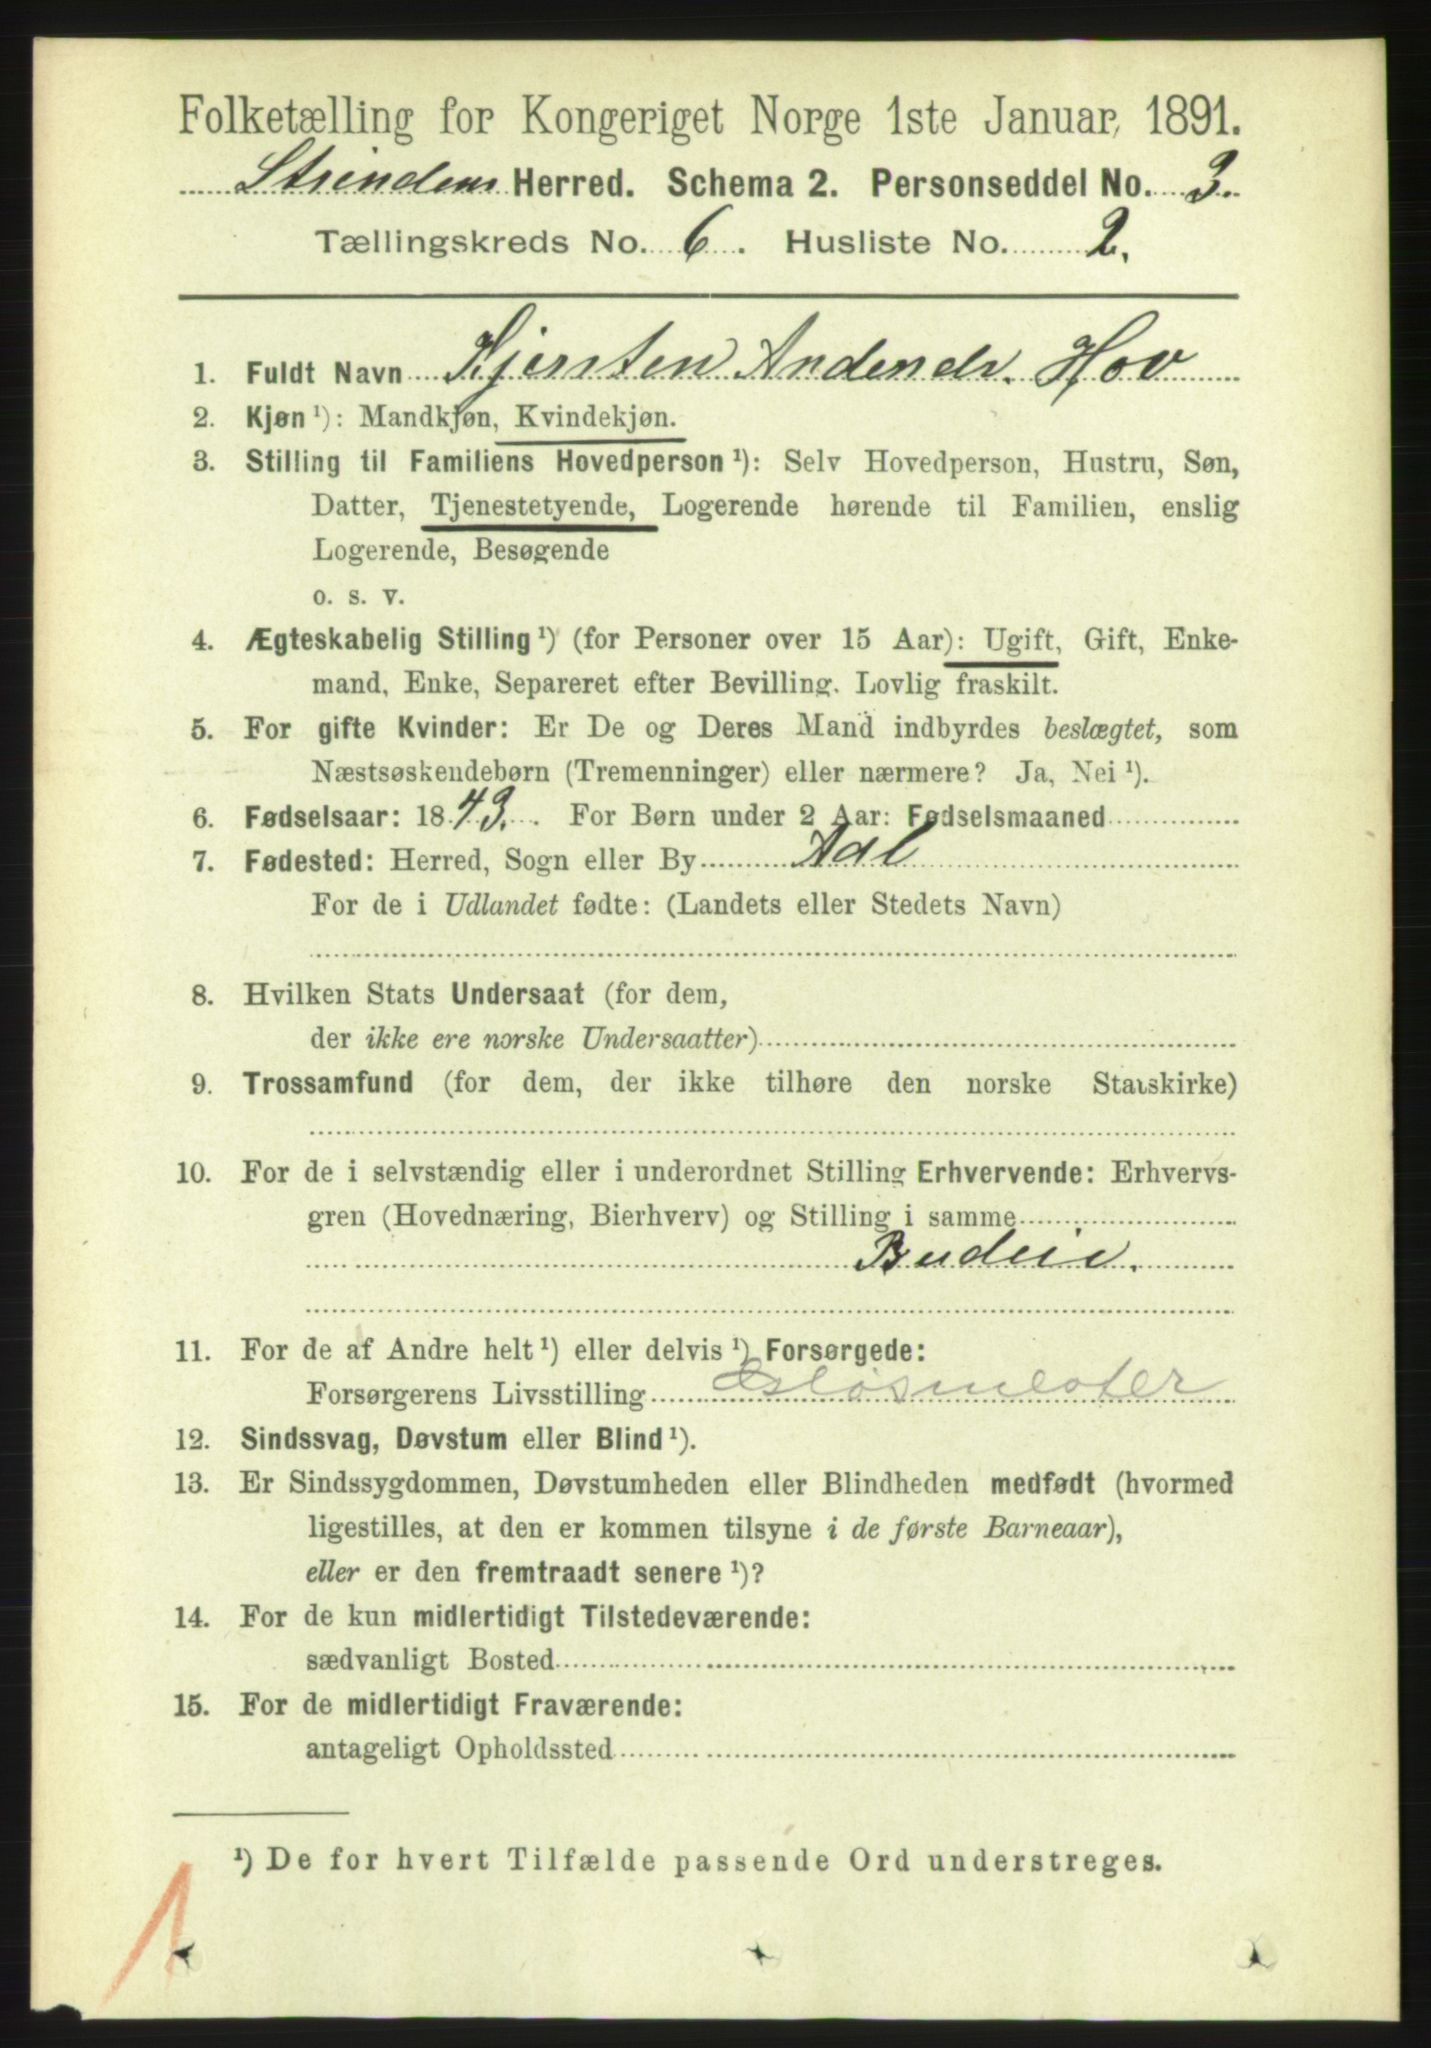 Folketælling for Kongeriget Norge 1ste Januar, 1891.
Strindens Herred. Schema 2. Personseddel No. 3.
Tællingskreds No. 6. Husliste No. 2.
1. Fuldt Navn Kjersten Andersdr. Hov
2. Kjøn ¹): Mandkjøn, Kvindekjøn.
3. Stilling til Familiens Hovedperson ¹): Selv Hovedperson, Hustru, Søn,
Datter, Tjenestetyende, Logerende hørende til Familien, enslig
Logerende, Besøgende
o. s. v.
4. Ægteskabelig Stilling ¹) (for Personer over 15 Aar): Ugift, Gift, Enke-
mand, Enke, Separeret efter Bevilling. Lovlig fraskilt.
5. For gifte Kvinder: Er De og Deres Mand indbyrdes beslægtet, som
Næstsøskendebørn (Tremenninger) eller nærmere? Ja, Nei ¹).
6. Fødselsaar: 1843. For Børn under 2 Aar: Fødselsmaaned
7. Fødested: Herred, Sogn eller By Aal
For de i Udlandet fødte: (Landets eller Stedets Navn)
8. Hvilken Stats Undersaat (for dem,
der ikke ere norske Undersaatter)
9. Trossamfund (for dem, der ikke tilhøre den norske Statskirke)
10. For de i selvstændig eller i underordnet Stilling Erhvervende: Erhvervs-
gren (Hovednæring, Bierhverv) og Stilling i samme
Budeie.
11. For de af Andre helt ¹) eller delvis ¹) Forsørgede:
Forsørgerens Livsstilling
12. Sindssvag, Døvstum eller Blind ¹).
13. Er Sindssygdommen, Døvstumheden eller Blindheden medfødt (hvormed
ligestilles, at den er kommen tilsyne i de første Barneaar),
eller er den fremtraadt senere ¹)?
14. For de kun midlertidigt Tilstedeværende:
sædvanligt Bosted
15. For de midlertidigt Fraværende:
antageligt Opholdssted
¹) De for hvert Tilfælde passende Ord understreges.
1